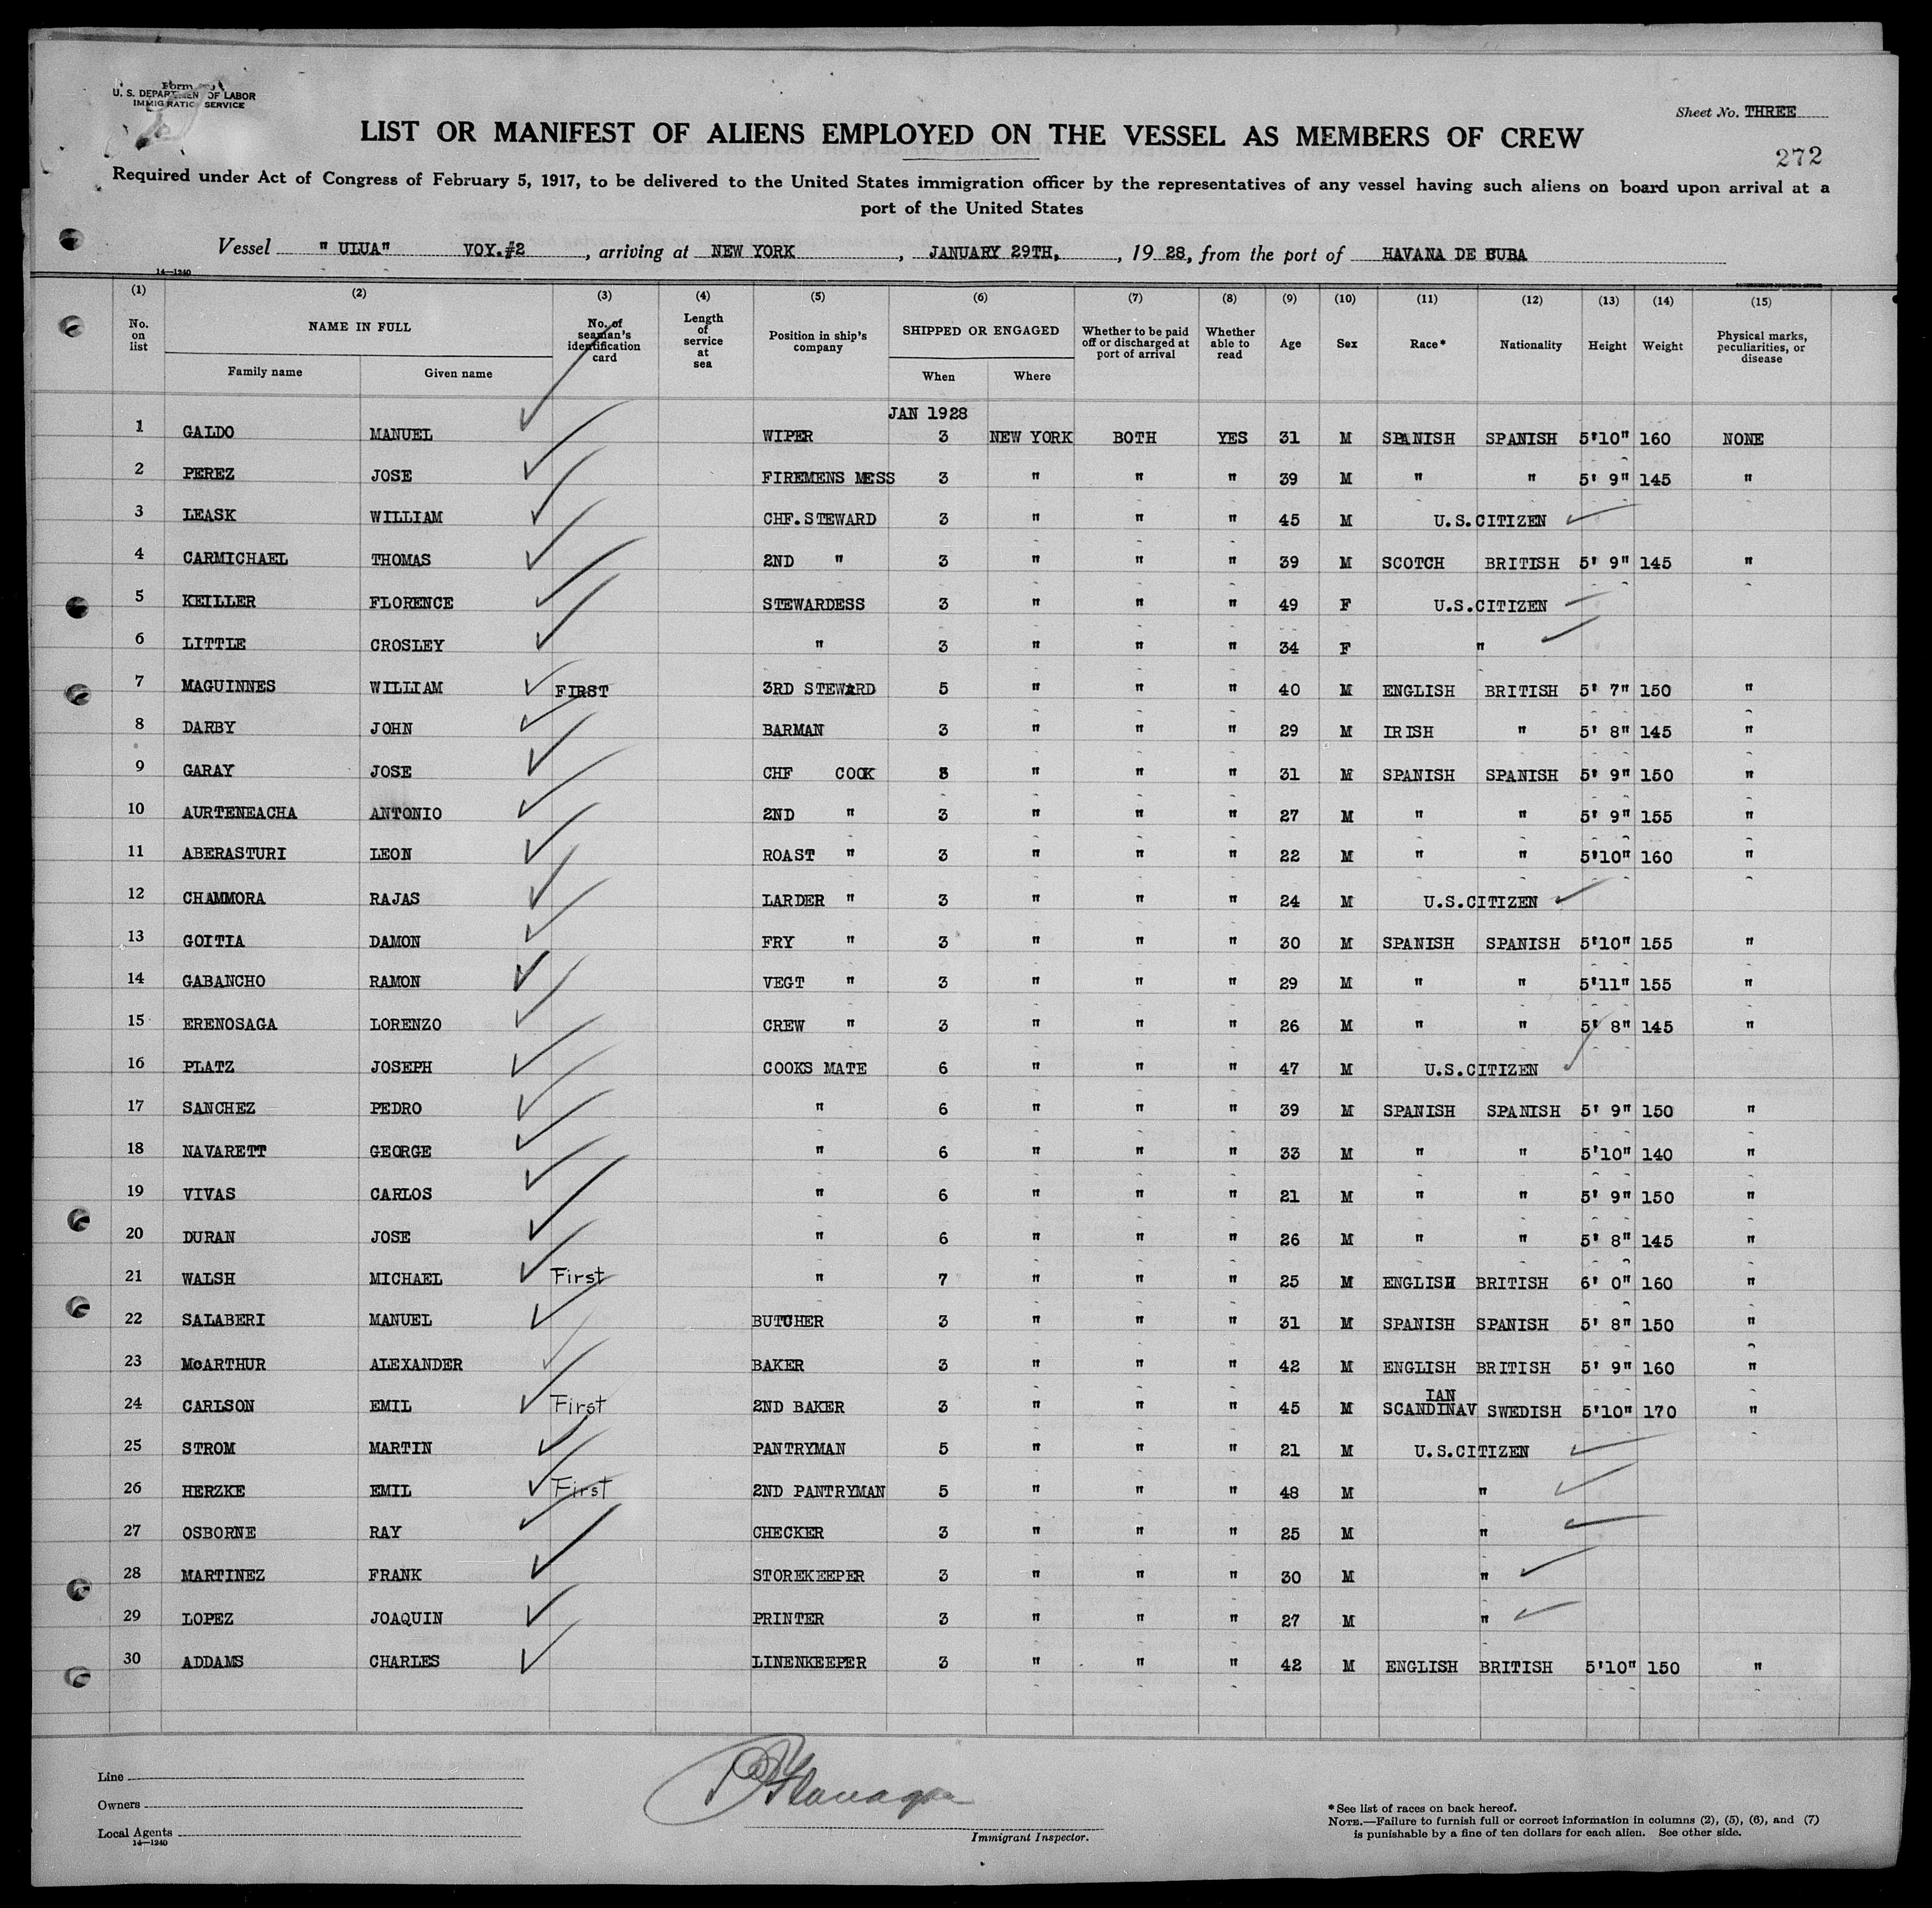 U. S. DEPARTMENT OF LABOR
IMMIGRATION SERVICE
Sheet No. THREE
LIST OR MANIFEST OF ALIENS EMPLOYED ON THE VESSEL AS MEMBERS OF CREW
272
Required under Act of Congress of February 5, 1917, to be delivered to the United States immigration officer by the representatives of any vessel having such aliens on board upon arrival at a
port of the United States
Vessel "ULUA" VOY.#2, arriving at NEW YORK, JANUARY 29TH, , 19 28, from the port of HAVANA DE CUBA
14—1240
(1) (2) (3) (4) (5) (6) (7) (8) (9) (10) (11) (12) (13) (14) (15)
No. on list NAME IN FULL Family name Given name No. of seaman's identification card Length of service at sea Position in ship's company SHIPPED OR ENGAGED When Where Whether to be paid off or discharged at port of arrival Whether able to read Age Sex Race* Nationality Height Weight Physical marks, peculiarities, or disease
JAN 1928
1 GALDO MANUEL WIPER 3 NEW YORK BOTH YES 31 M SPANISH SPANISH 5'10" 160 NONE
2 PEREZ JOSE FIREMENS MESS 3 " " " 39 M " " 5' 9" 145 "
3 LEASK WILLIAM CHF.STEWARD 3 " " " 45 M U.S.CITIZEN
4 CARMICHAEL THOMAS 2ND " 3 " " " 39 M SCOTCH BRITISH 5' 9" 145 "
5 KEILLER FLORENCE STEWARDESS 3 " " " 49 F U.S.CITIZEN
6 LITTLE CROSLEY " 3 " " " 34 F "
7 MAGUINNES WILLIAM FIRST 3RD STEWARD 5 " " " 40 M ENGLISH BRITISH 5' 7" 150 "
8 DARBY JOHN BARMAN 3 " " " 29 M IRISH " 5' 8" 145 "
9 GARAY JOSE CHF COOK 3 " " " 31 M SPANISH SPANISH 5' 9" 150 "
10 AURTENEACHA ANTONIO 2ND " 3 " " " 27 M " " 5' 9" 155 "
11 ABERASTURI LEON ROAST " 3 " " " 22 M " " 5'10" 160 "
12 CHAMMORA RAJAS LARDER " 3 " " " 24 M U.S.CITIZEN
13 GOITIA DAMON FRY " 3 " " " 30 M SPANISH SPANISH 5'10" 155 "
14 GABANCHO RAMON VEGT " 3 " " " 29 M " " 5'11" 155 "
15 ERENOSAGA LORENZO CREW " 3 " " " 26 M " " 5' 8" 145 "
16 PLATZ JOSEPH COOKS MATE 6 " " " 47 M U.S.CITIZEN
17 SANCHEZ PEDRO " 6 " " " 39 M SPANISH SPANISH 5' 9" 150 "
18 NAVARETT GEORGE " 6 " " " 33 M " " 5'10" 140 "
19 VIVAS CARLOS " 6 " " " 21 M " " 5' 9" 150 "
20 DURAN JOSE " 6 " " " 26 M " " 5' 8" 145 "
21 WALSH MICHAEL First " 7 " " " 25 M ENGLISH BRITISH 6' 0" 160 "
22 SALABERI MANUEL BUTCHER 3 " " " 31 M SPANISH SPANISH 5' 8" 150 "
23 McARTHUR ALEXANDER BAKER 3 " " " 42 M ENGLISH BRITISH 5' 9" 160 "
24 CARLSON EMIL First 2ND BAKER 3 " " " 45 M SCANDINAVIAN SWEDISH 5'10" 170 "
25 STROM MARTIN PANTRYMAN 5 " " " 21 M U.S.CITIZEN
26 HERZKE EMIL First 2ND PANTRYMAN 5 " " " 48 M "
27 OSBORNE RAY CHECKER 3 " " " 25 M "
28 MARTINEZ FRANK STOREKEEPER 3 " " " 30 M "
29 LOPEZ JOAQUIN PRINTER 3 " " " 27 M "
30 ADDAMS CHARLES LINENKEEPER 3 " " " 42 M ENGLISH BRITISH 5'10" 150 "
Line
Owners
Local Agents
14—1240
Immigrant Inspector.
*See list of races on back hereof.
NOTE.—Failure to furnish full or correct information in columns (2), (5), (6), and (7)
is punishable by a fine of ten dollars for each alien. See other side.